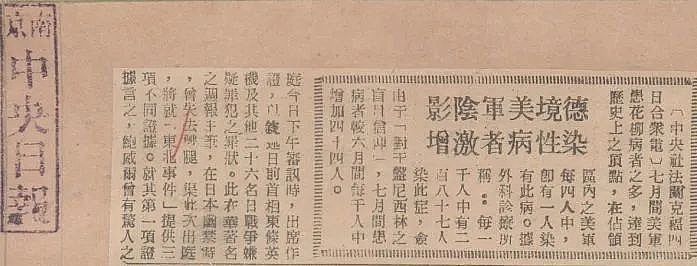 南京
中央日報
德境美軍陰影
染性病者激增
「中央社法蘭克福四
日合衆電」七月間美軍
患花柳病者之多，達到
歷史上之頂點，在佔領
區內之美軍
每四人中，
即有一人染
有此病。據
外科診療所
稱：每一
千人中有二
百八十七人
染此症，僉
由于「對于盤尼西林之
盲目信仰」，七月間患
病者較六月間每千人中
增加四十四人。
庭今日下午審訊時，出席作
證，以 日前首相東條英
機及其他二十六名日戰爭嫌
疑罪犯之罪狀。此在華著名
之週報主筆，在日本 禁時
，曾失去 腿，渠此次出庭
，將就「東北事件」提供三
項不同證據。就其第一項證
據言之，鮑威爾曾有驚人之